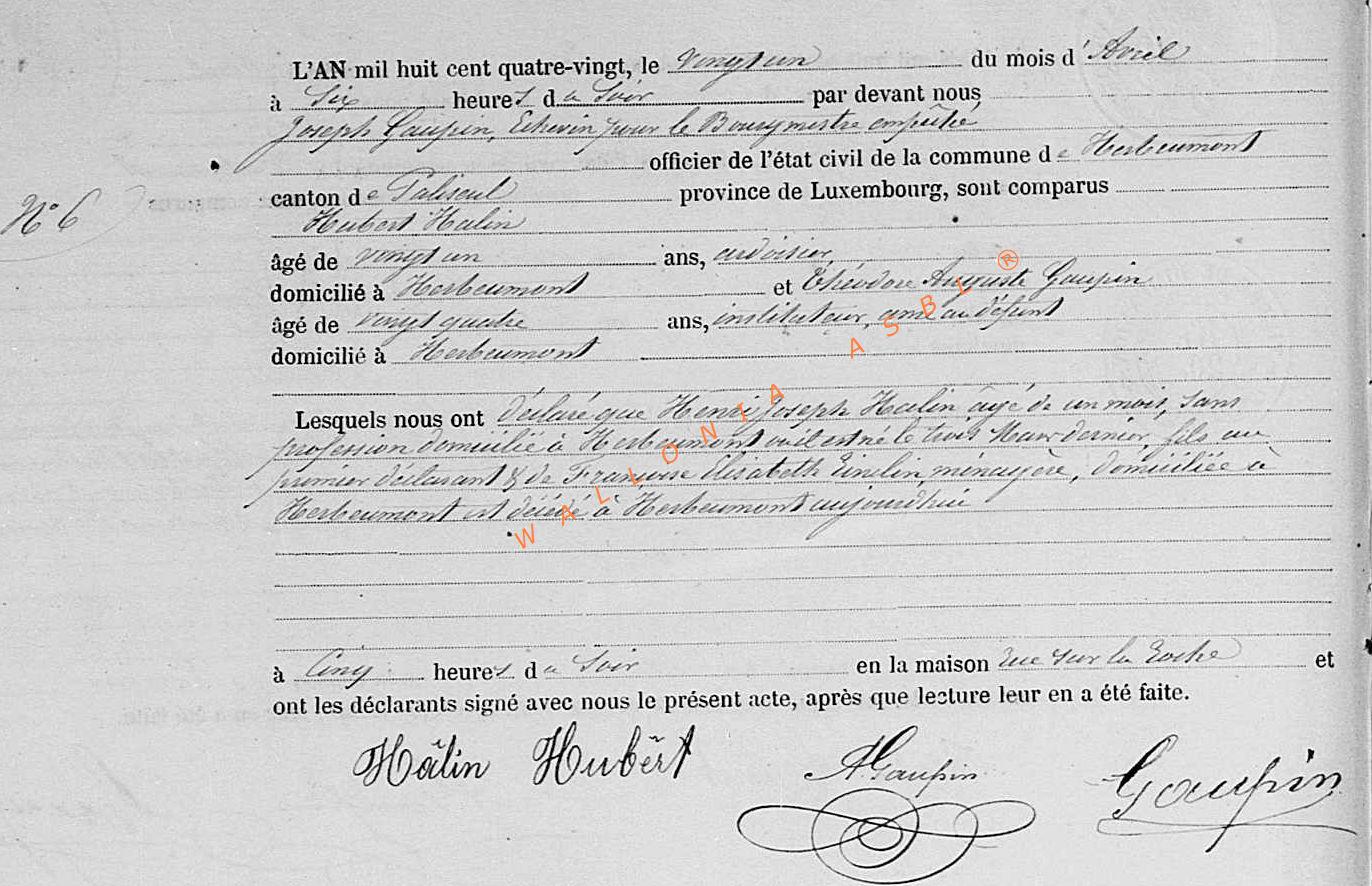 L'AN mil huit cent quatre-vingt, le vingt un du mois d' Avril
à Six heures du Soir par devant nous
Joseph Gaupin, Echevin pour le Bourgmestre empêché
officier de l'état civil de la commune de Herbeumont
N° 6
canton de Paliseul province de Luxembourg, sont comparus
Hubert Halin
âgé de vingt un ans, ardoisier,
domicilié à Herbeumont et Théodore Auguste Gaupin
âgé de vingt quatre ans, instituteur, ami au défunt
domicilié à Herbeumont
Lesquels nous ont déclaré que Henri Joseph Halin agé de un mois, sans
profession domicilié à Herbeumont où il est né le trois Mars dernier, fils au
premier déclarant & de Françoise Elisabeth ménagère, domiciliée à
Herbeumont est décédé à Herbeumont aujourdhui
à Cinq heures du Soir en la maison rue sur la Roche et
ont les déclarants signé avec nous le présent acte, après que lecture leur en a été faite.
Hâlin Hubert A Gaupin Gaupin
WALLONIA ASBL ®